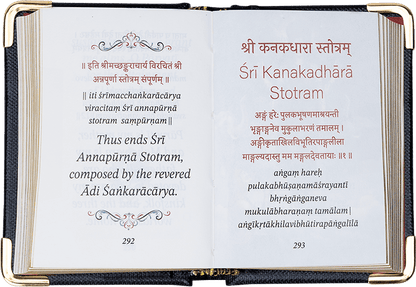 ॥ इति श्रीमच्छङ्कराचार्य विरचितं श्री
अन्नपूर्णा स्तोत्रम् संपूर्णम् ॥
|| iti śrīmacchaṅkarācārya
viracitaṃ śrī annapūrṇā
stotram saṃpūrṇam||
Thus ends Śrī
Annapūrṇā Stotram,
composed by the revered
Ādi Śaṅkarācārya.
292
श्री कनकधारा स्तोत्रम्
Śrī Kanakadhārā
Stotram
अङ्गं हरेः पुलकभूषणमाश्रयन्ती
भृङ्गाङ्गनेव मुकुलाभरणं तमालम् ।
अङ्गीकृताखिलविभूतिरपाङ्गलीला
माङ्गल्यदास्तु मम मङ्गलदेवतायाः ॥१॥
aṅgaṃ hareḥ
pulakabhūṣaṇamāśrayantī
bhṛṅgāṅganeva
mukulābharaṇaṃ tamālam|
aṅgīkṛtākhilavibhūtirapāṅgalīlā
293